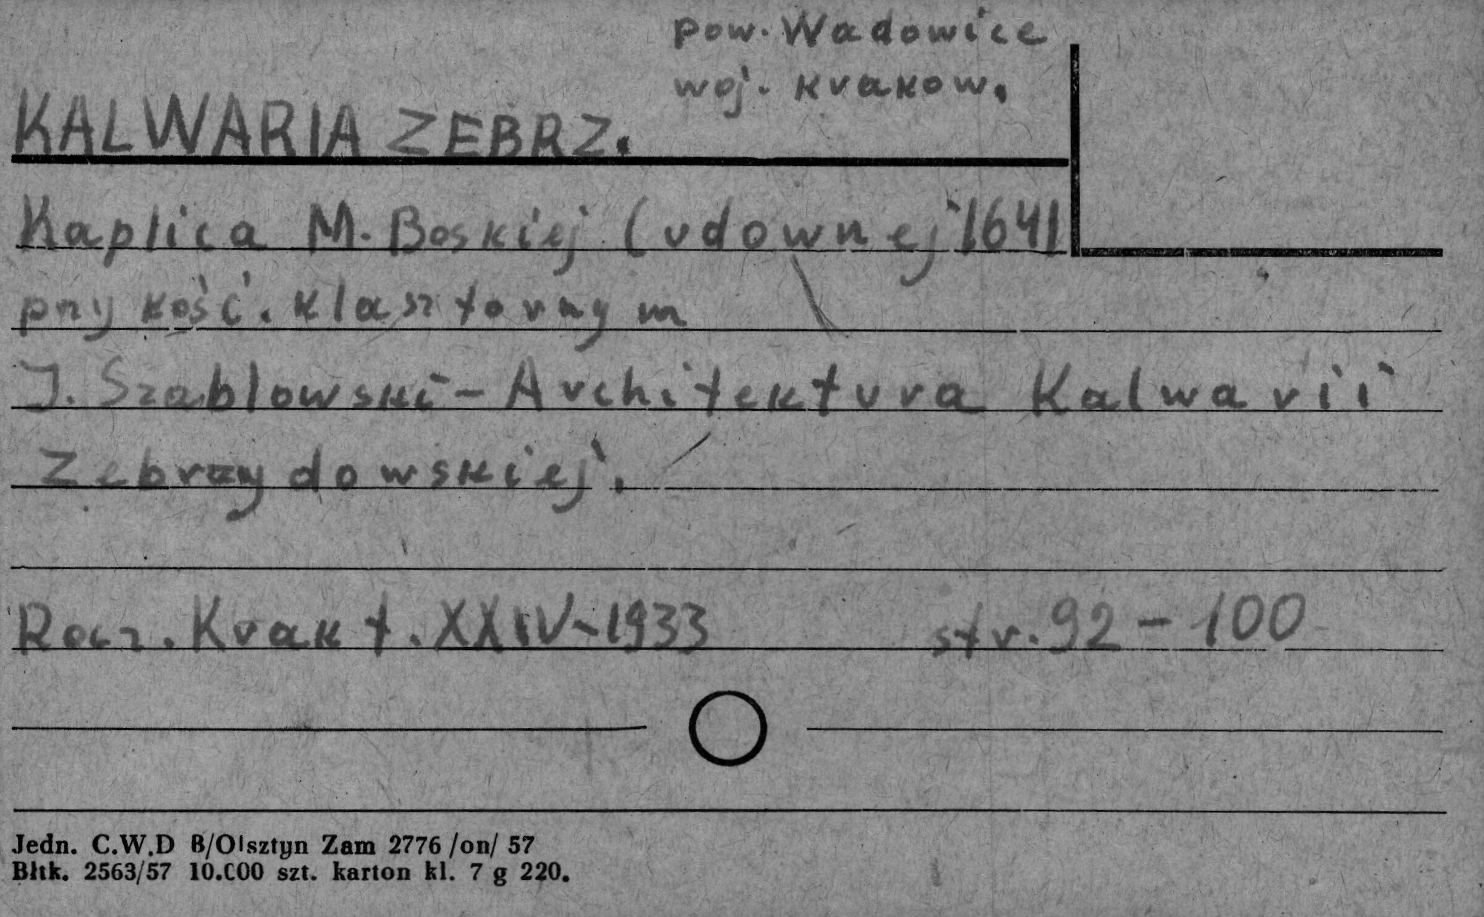 pow. Wadowice
woj. krakow.
KALWARIA ZEBRZ.
Kaplica M. Boskiej Cudownej 1641
przy kość. klasztornym
J. Szablowski - Architektura Kalwarii
Zebrzydowskiej.
Rocz. Krak t. XXIV - 1933 str. 92 - 100
Jedn. C.W.D B/Olsztyn Zam 2776 /on/ 57
Bltk. 2563/57 10.000 szt. karton kl. 7 g 220.